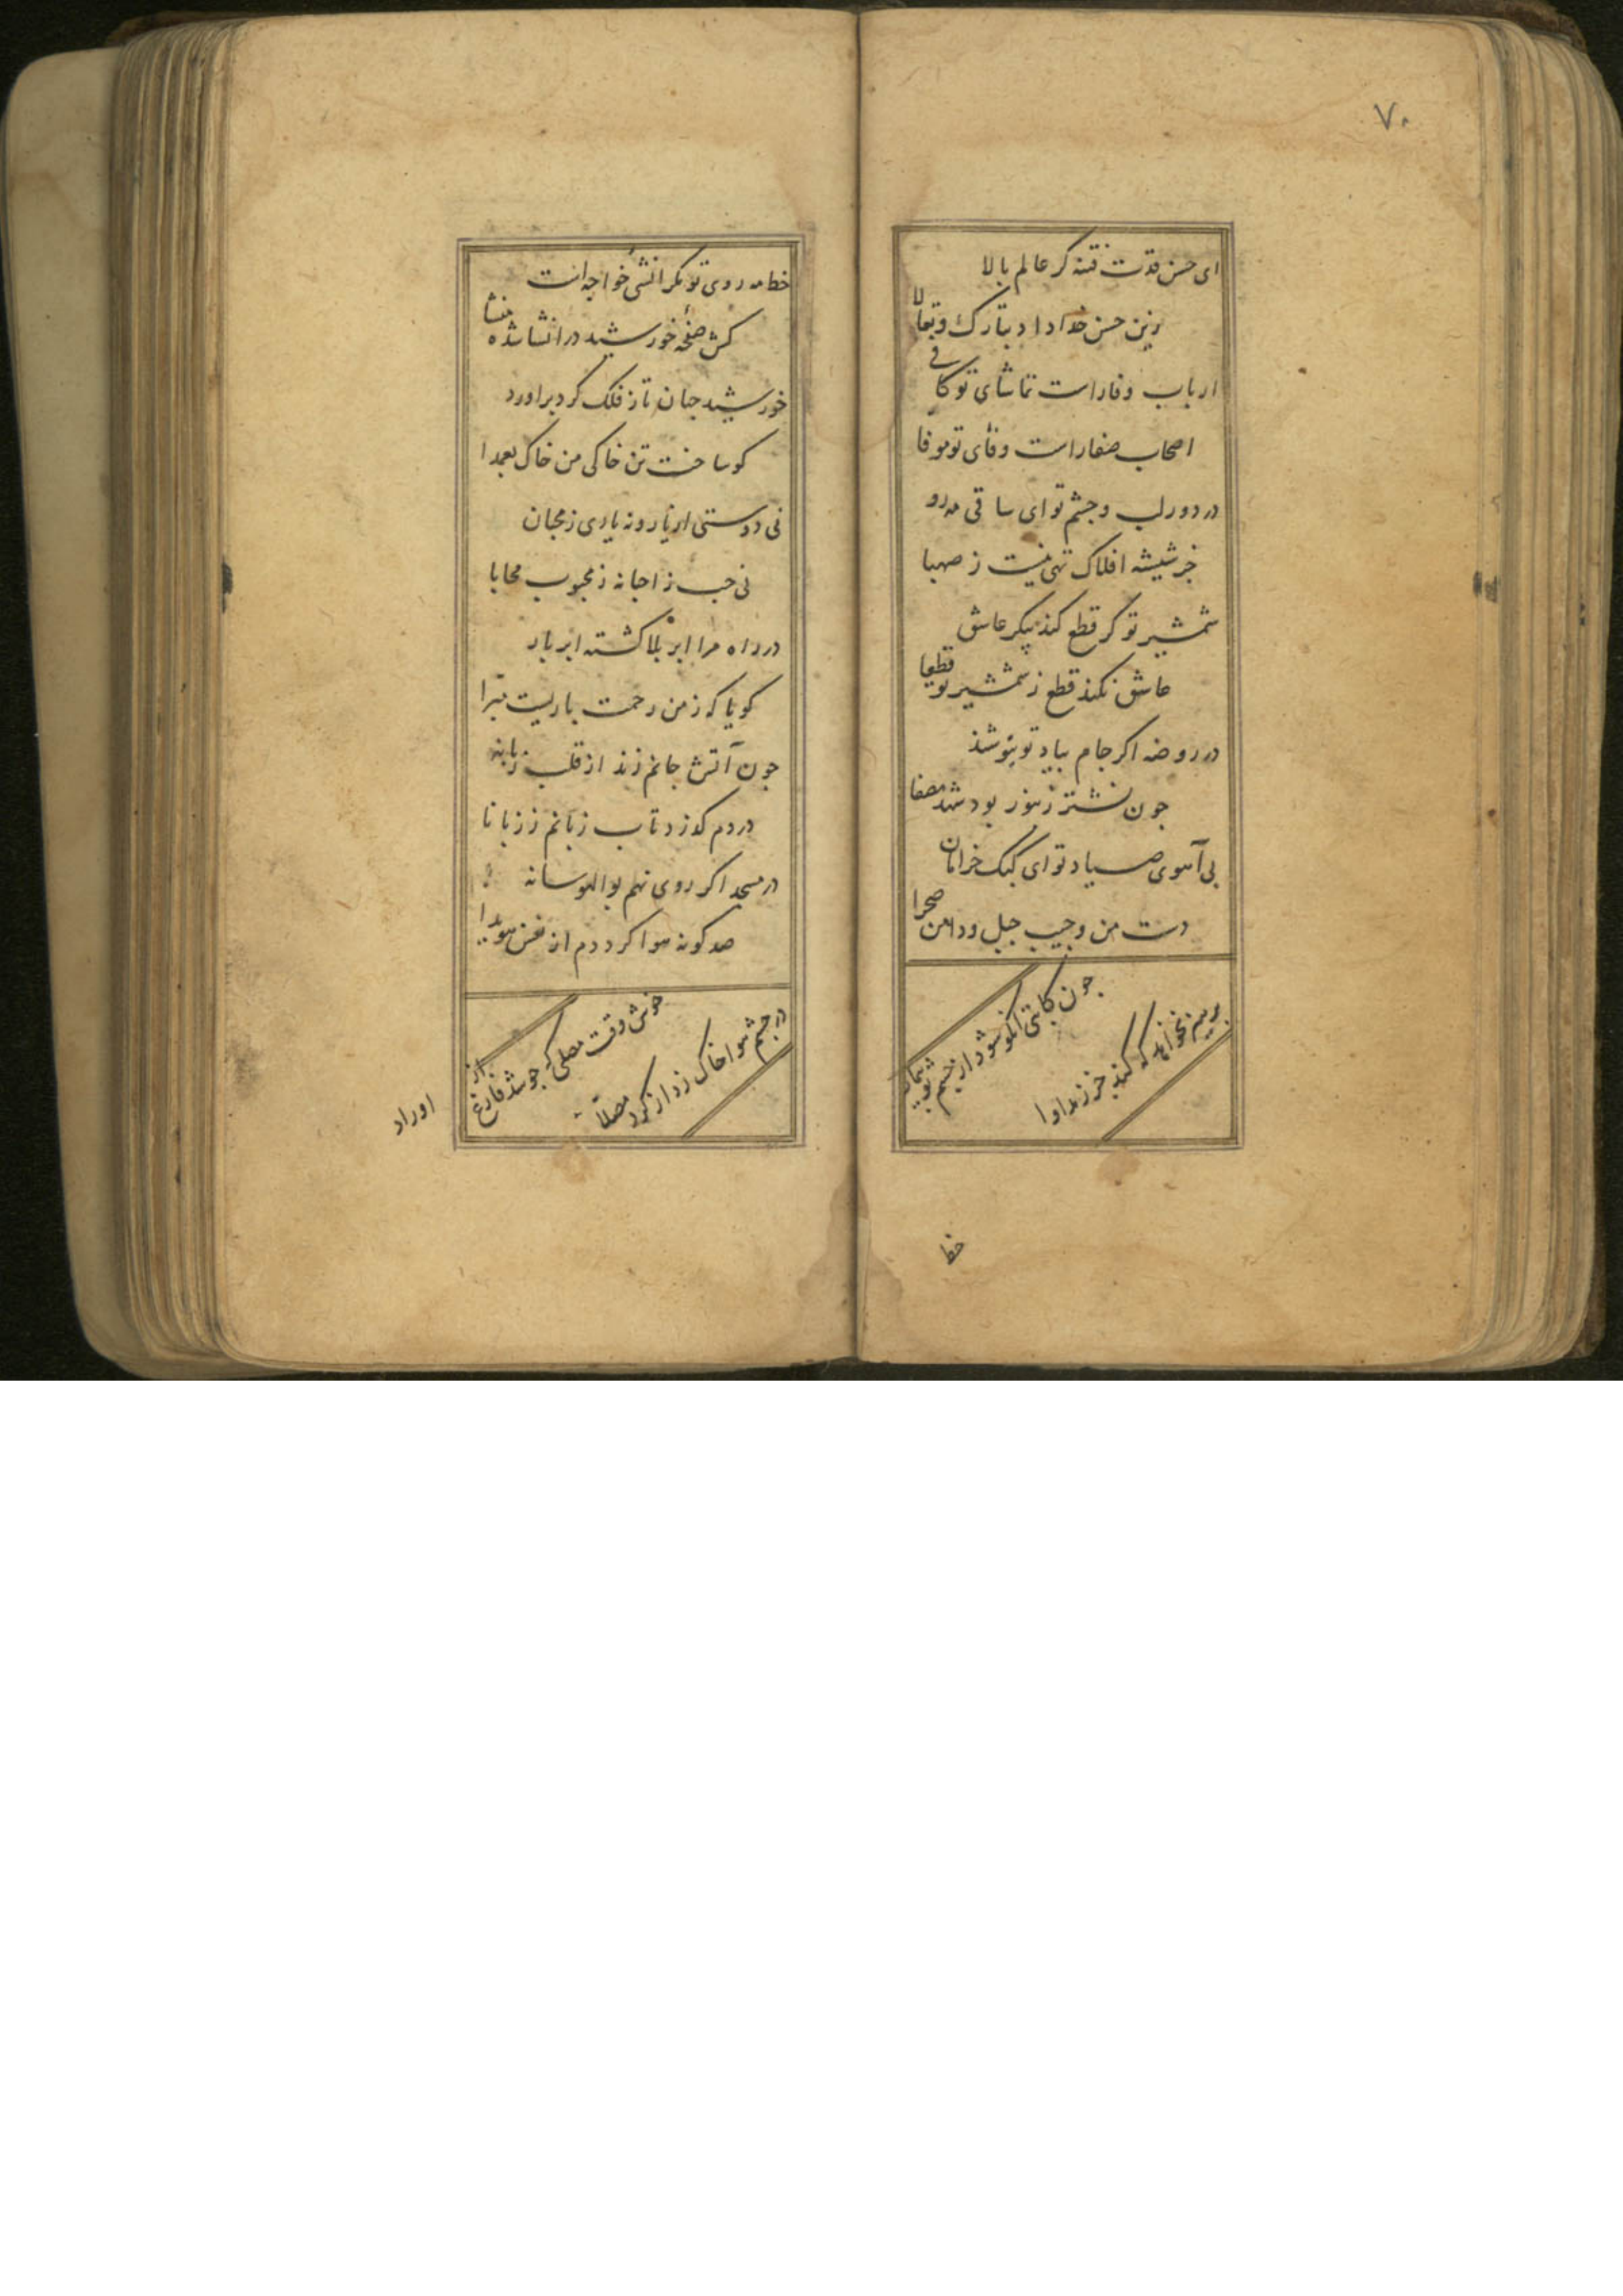 ۷۰
ای حسن قدت فتنه کر عالم بالا
زین حسن خداداد تبارک و تعالا
ارباب وفا راست تماشای تو کافی
اصحاب صفا راست وفای تو موفا
در دور لب و جشم تو ای ساقی مه رو
جز شیشه افلاک تهی نیست ز صهبا
شمشیر تو کر قطع کند پیکر عاشق
عاشق نکند قطع ز شمشیر تو قطعا
در روضه اکر جام بیاد تو بنوشند
جون نشتر زنبور بود شهد مصفا
بی آهوی صیاد تو ای کبک خرامان
دست من و جیب جبل و دامن صحرا
جون کاتبی انکو شود از جشم تو بیمار
بر سر نخواهد که کند جز ز مداوا
خط
خط مه روی تو مکر انشی خواجه است
کش صفحه خورشید در انشا شده منشا
خورشید جهان تاز فلک کرد براورد
کو ساخت تن خاکی من خاک بعمدا
نی دوستی از یار و نه یاری ز محبان
نی حب ز احبا نه ز محبوب محابا
در راه مرا ابر بلا کشته ابر بار
کویا که ز من رحمت باریست تبرا
جون آتش جانم زند از قلب زبانه
در دم کند تاب زبانم ز زبانا
در مسجد اکر روی نهم بوالهوسانه
صد کونه هوا کرددم از نفس هویدا
خوش وقت مصلی که جو شد فارغ از
در جشم هوا خاک زد از کرد مصلا
اوراد